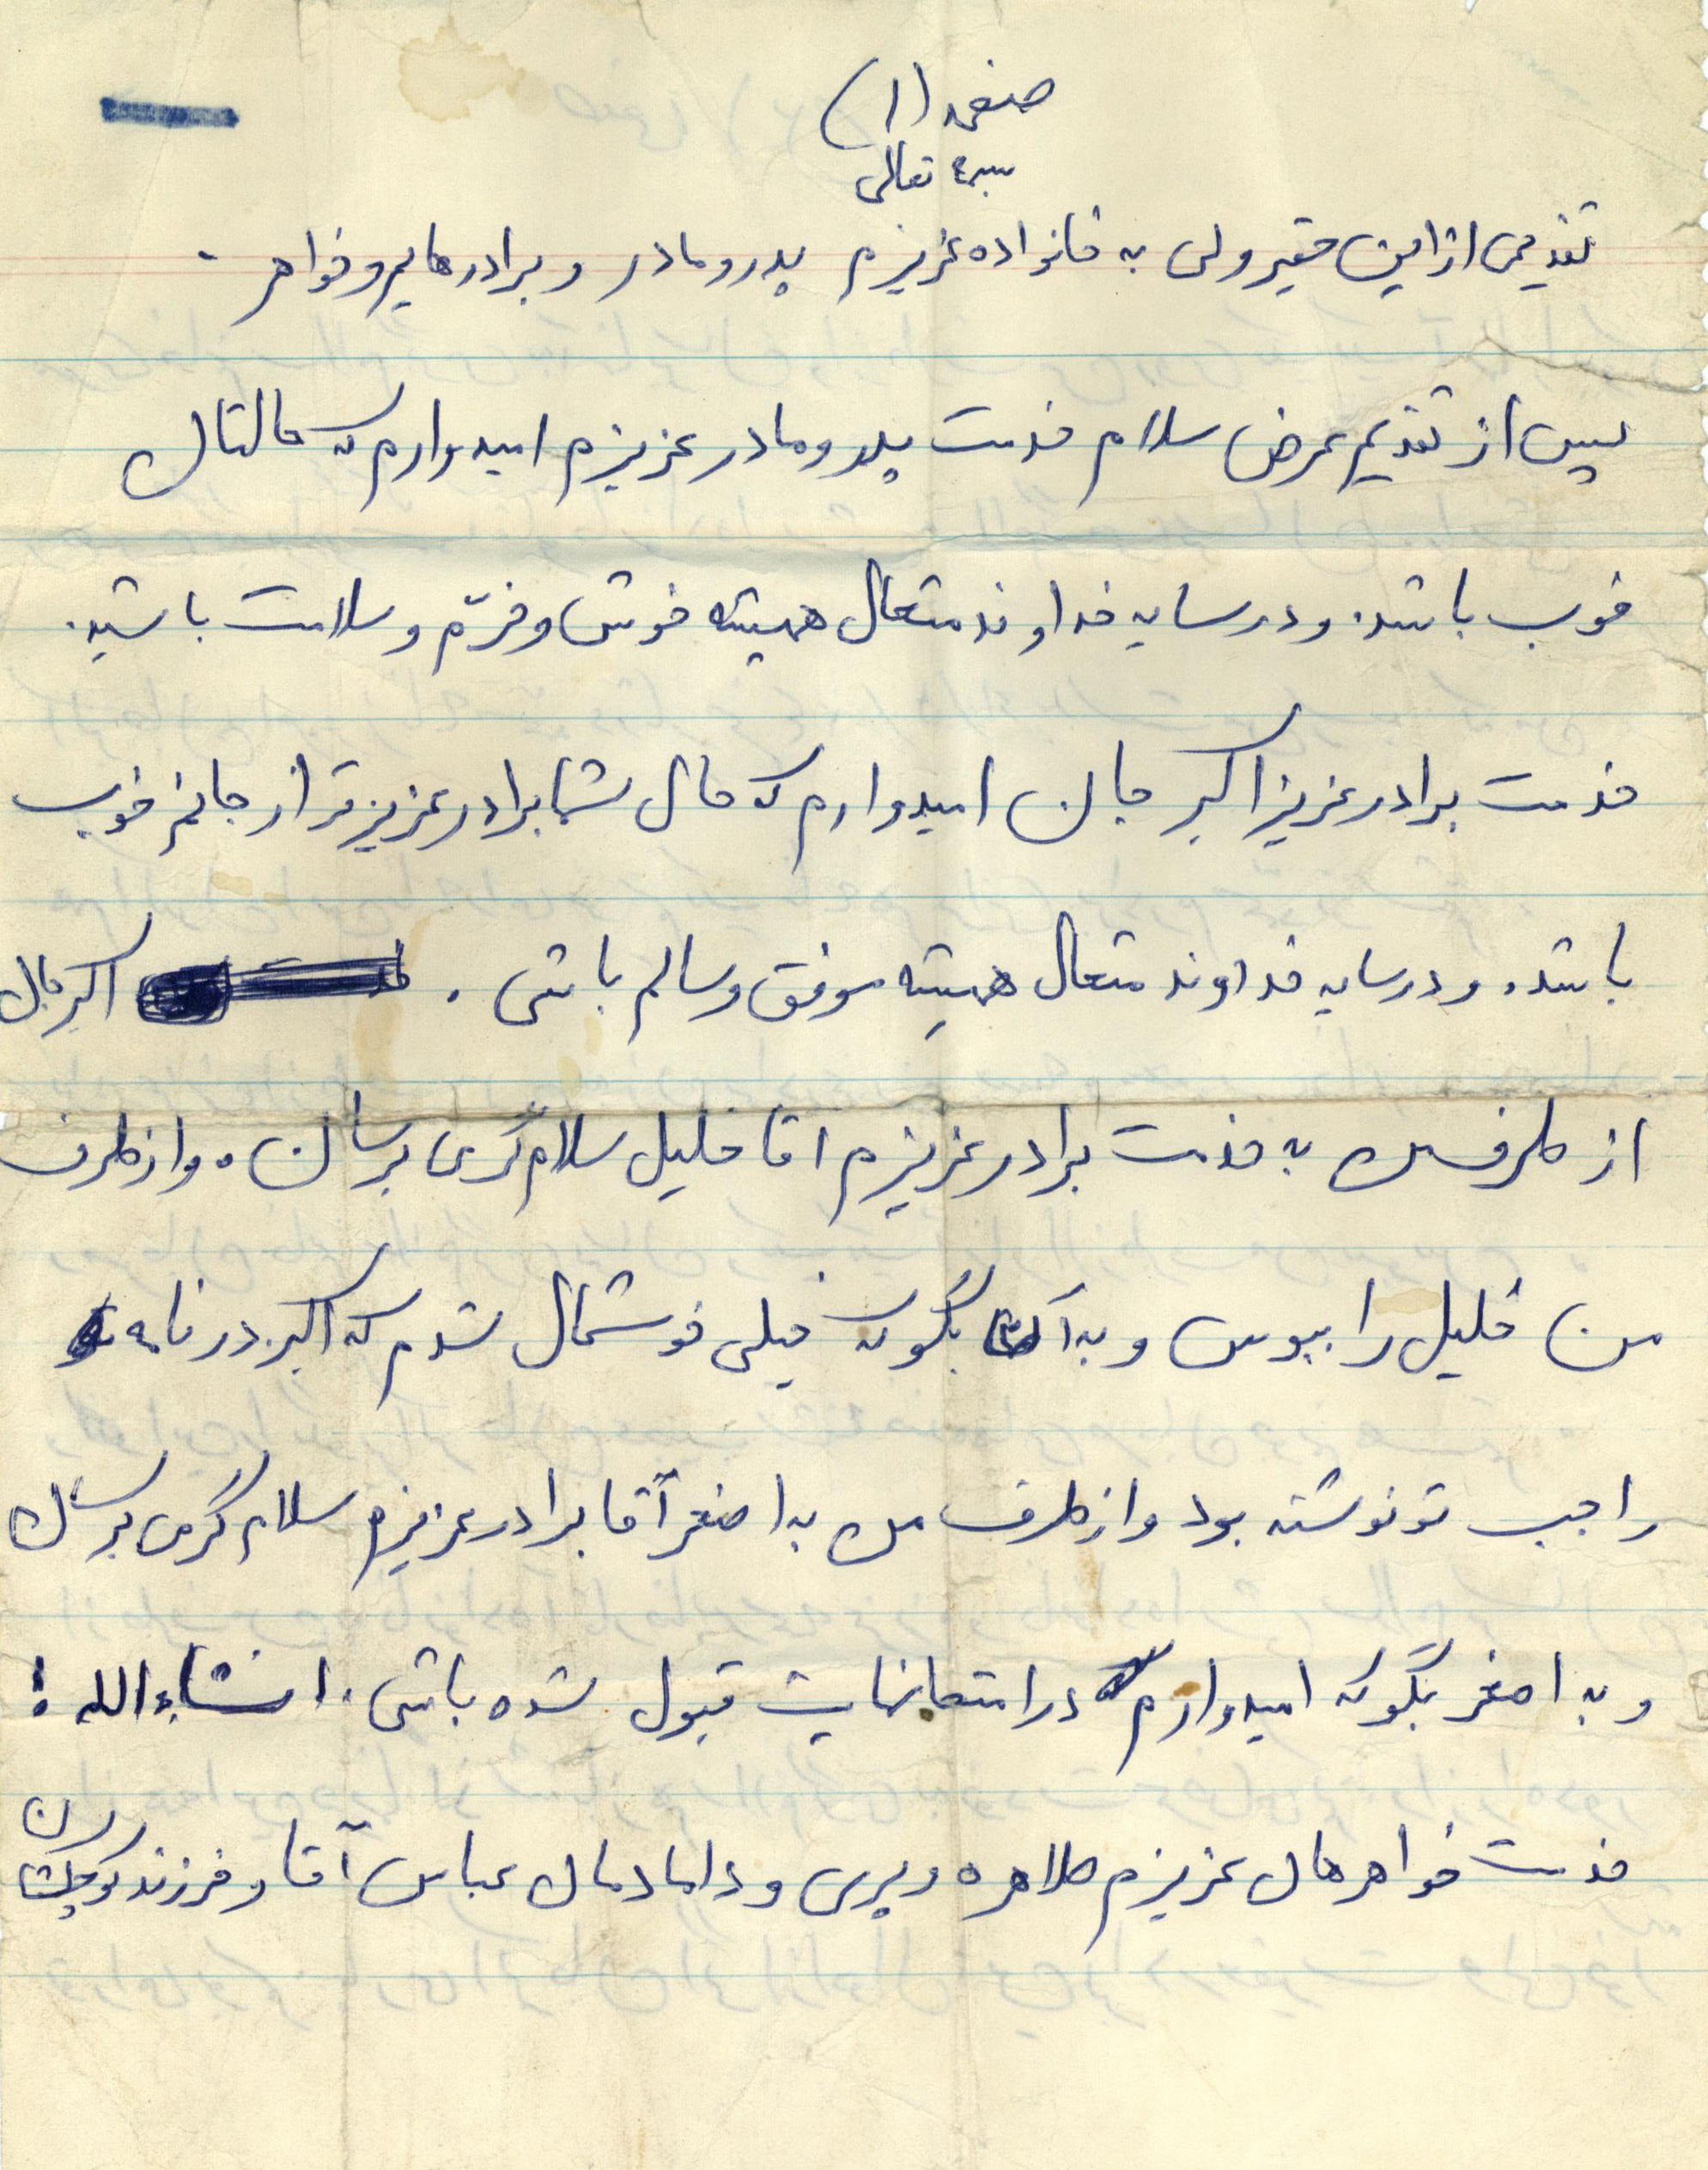 صفحه (۱)
بسمه تعالی
تقدیمی از این حقیر ولی به خانواده عزیزم پدر و مادر و برادرهایم و خواهر.
پس از تقدیم عرض سلام خدمت پدر و مادر عزیزم امیدوارم که حالتان
خوب باشد. و در سایه خداوند متعال همیشه خوش و خرّم و سلامت باشید.
خدمت برادر عزیز اکبر جان امیدوارم که حال شما برادر عزیزتر از جانم خوب
باشد. و در سایه خداوند متعال همیشه موفق و سالم باشی. اکبر جان
از طرف من به خدمت برادر عزیزم اقا خلیل سلام گرمی برسان. و از طرف
من خلیل را ببوس و به بگو که خیلی خوشحال شدم که اکبر در نامه
راجب تو نوشته بود و از طرف من به اصغر آقا برادر عزیزم سلام گرمی برسان
و به اصغر بگو که امیدوارم در امتحانهایت قبول شده باشی. انشاءالله!
خدمت خواهرهای عزیزم طاهره و پری و دامادمان عباس آقا و فرزند کوچکشان